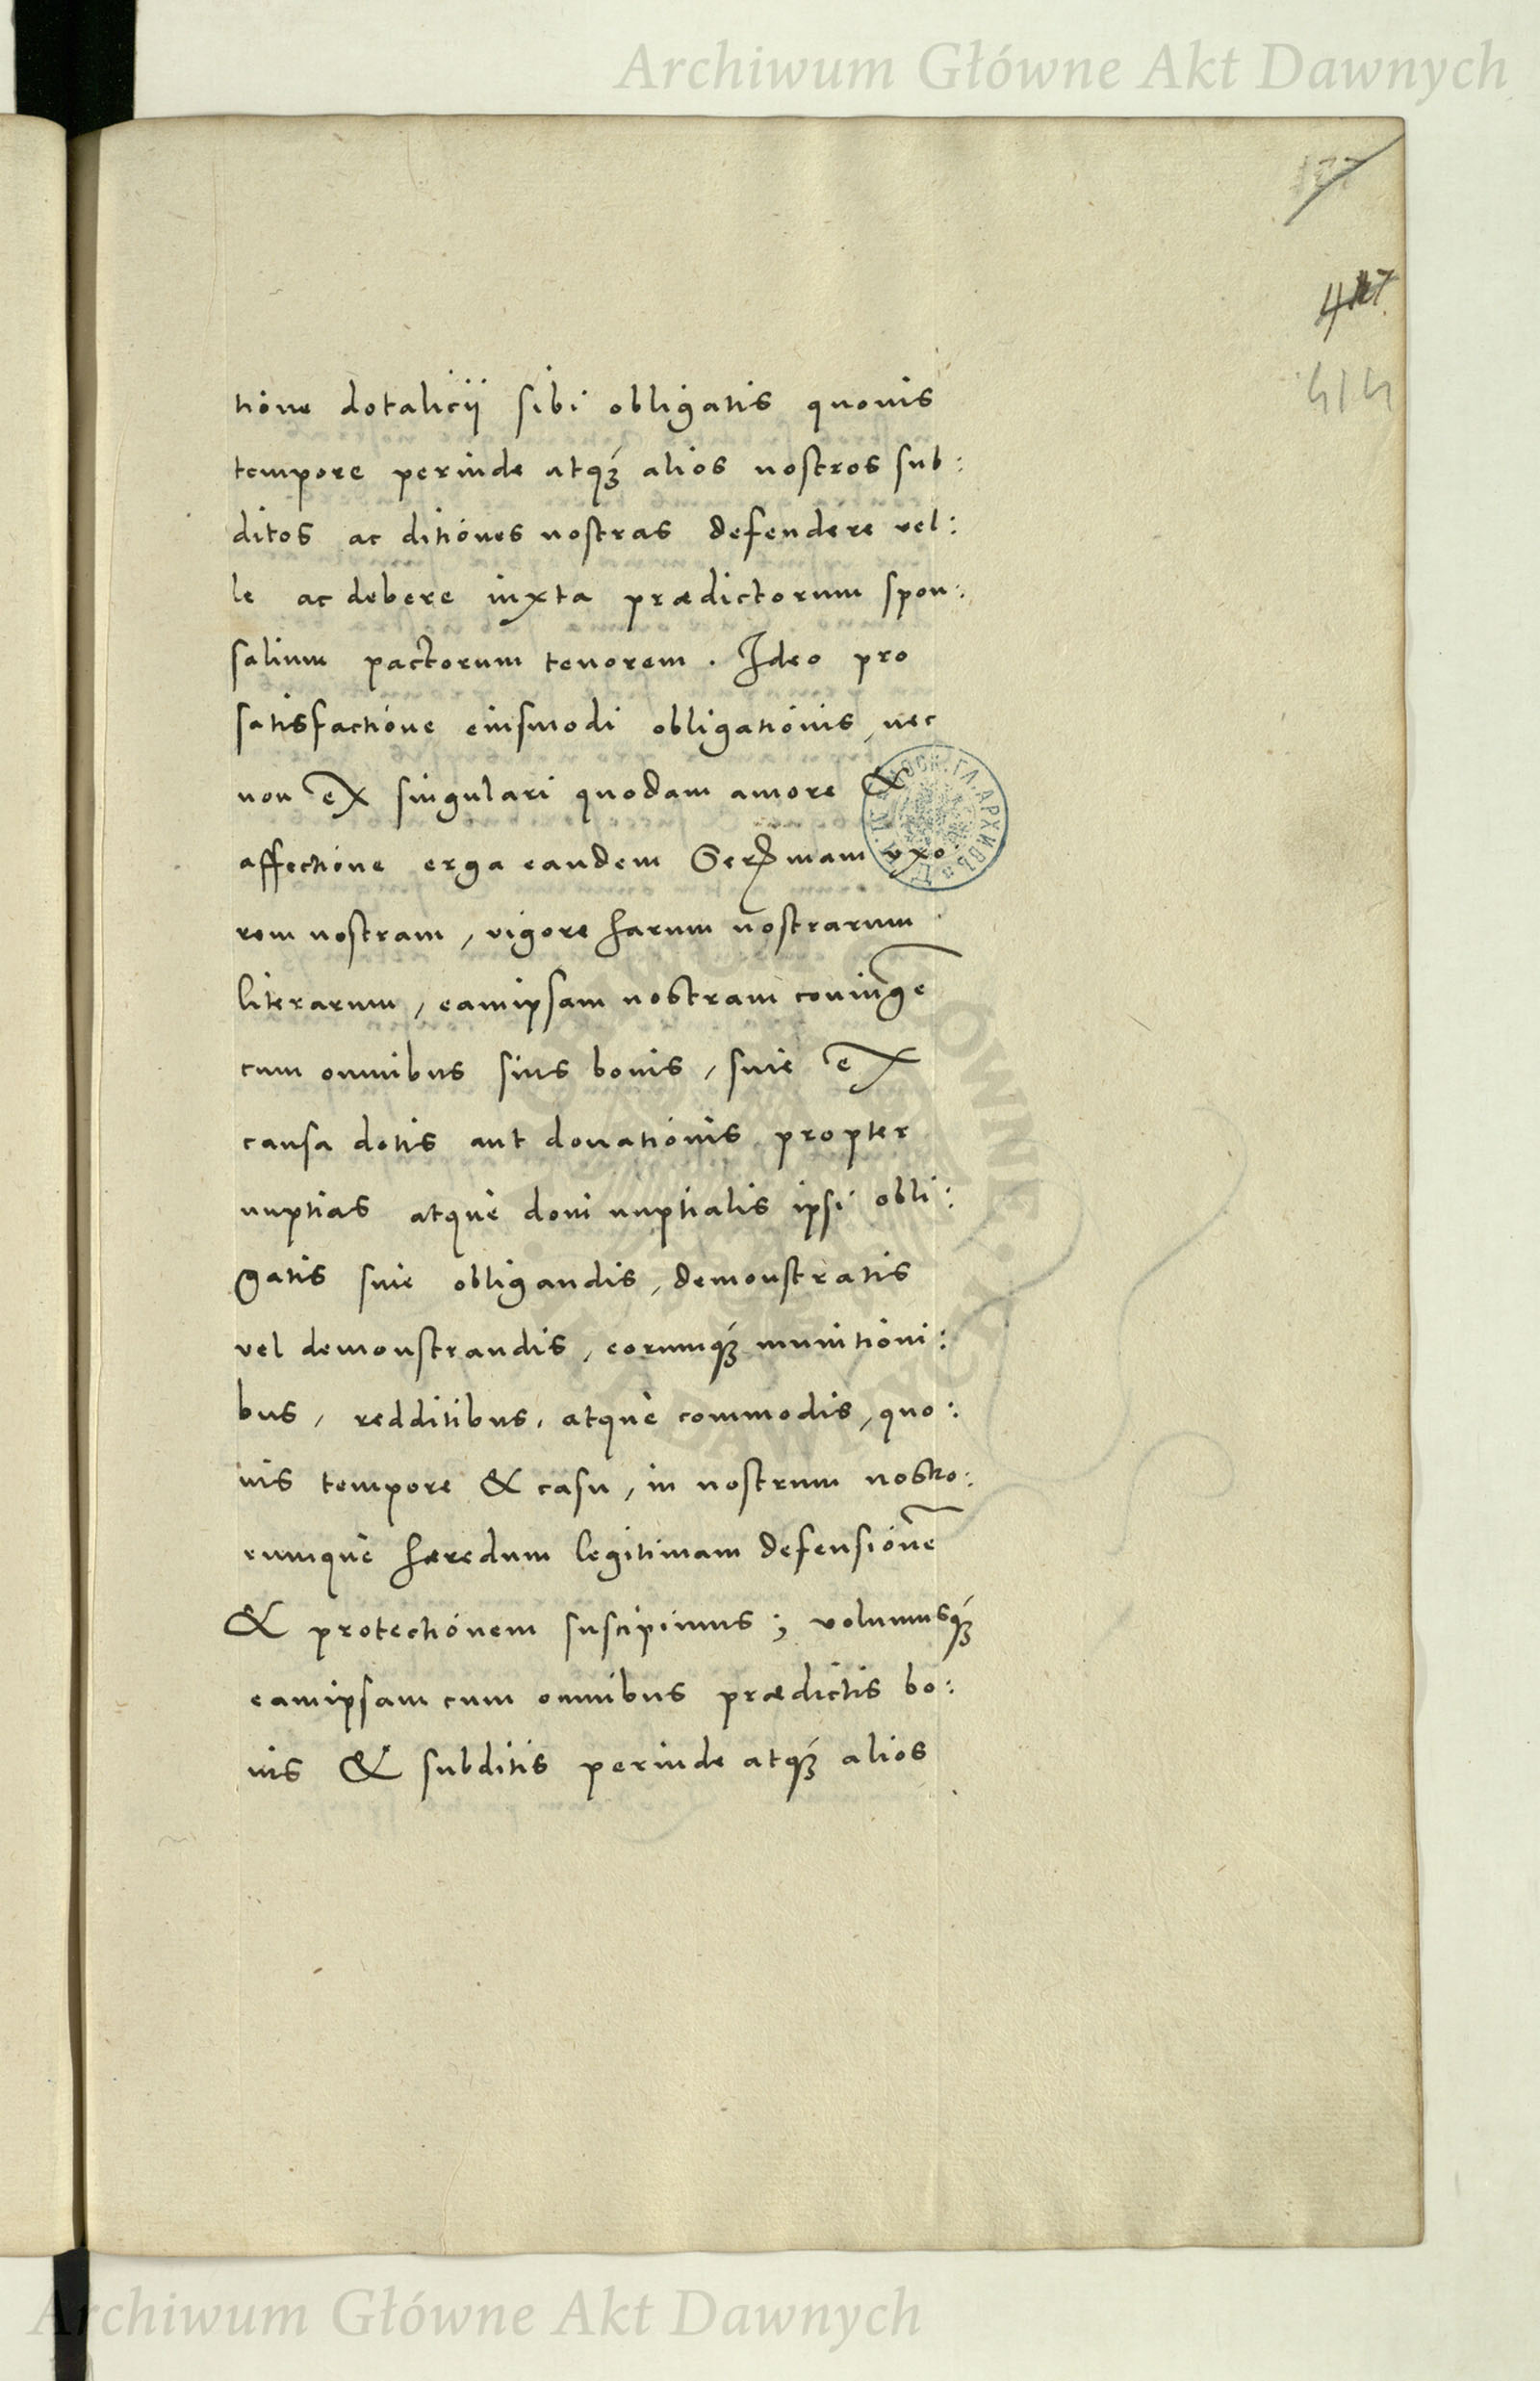 Archiwum Główne Akt Dawnych
414
tione dotalicij sibi obligatis quouis
tempore perinde atq́ꝫ alios nostros sub:
ditos ac ditiónes nostras defendere vel:
le ac debere iuxta prædictorum spon:
salium pactorum tenorem. Ideo pro
satisfactióne eiusmodi obligatiónis, nec
non ex singulari quodam amore &
affectióne erga eandem Serᵐᵃᵐ vxo
rem nostram, vigore harum nostrarum
literarum, eamipsam nostram coniugē
cum omnibus suis bonis, siue ex
causa dotis aut donatiónis propter
nuptias atquè doni nuptialis ipsi obli:
gatis siue obligandis, demonstratis
vel demonstrandis, eorumq́ꝫ munitióni:
bus, redditibus, atquè commodis, quo:
uis tempore & casu, in nostrum nostro:
rumquè hæredum legitimam defensiónē
& protectiónem suscipimus; volumusq́ꝫ
eamipsam cum omnibus prædictis bo:
nis & subditis perinde atq́ꝫ alios
Archiwum Główne Akt Dawnych